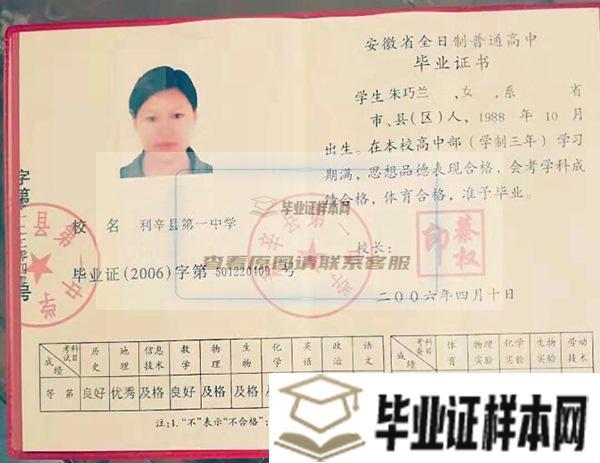 安徽省全日制普通高中
毕业证书
学生 朱巧兰 ,女 ,系 省
市、县(区)人，1988 年 10 月
出生。在本校高中部（学制三年）学习
期满，思想品德表现合格，会考学科成
绩合格，体育合格，准予毕业。
毕业证样本网
校 名 利辛县第一中学
校长：
秦权印
查看原图请联系客服
毕业证(2006)字第 501220409 号
二〇〇六年四月十日
考试科目 历史 地理 信息技术 数学 物理 生物 化学 英语 政治 语文
成绩
等 第 良好 优秀 及格 良好 及格 及格 及
考查科目 体育 物理实验 化学实验 生物实验 劳动技术
成绩
等
注：1. “不”表示“不合格”；
毕业证样本网